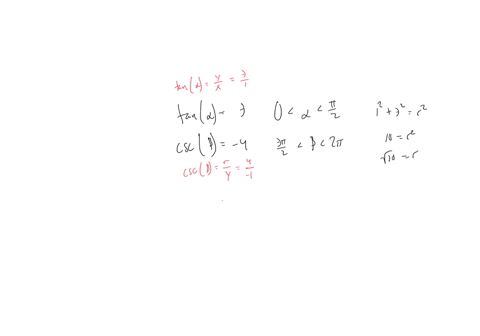 tan(α) = y/x = 3/1
tan(α) = 3 0 < α < π/2 1² + 3² = r²
csc(β) = -4 3π/2 < β < 2π 10 = r²
√10 = r
csc(β) = r/y = 4/-1